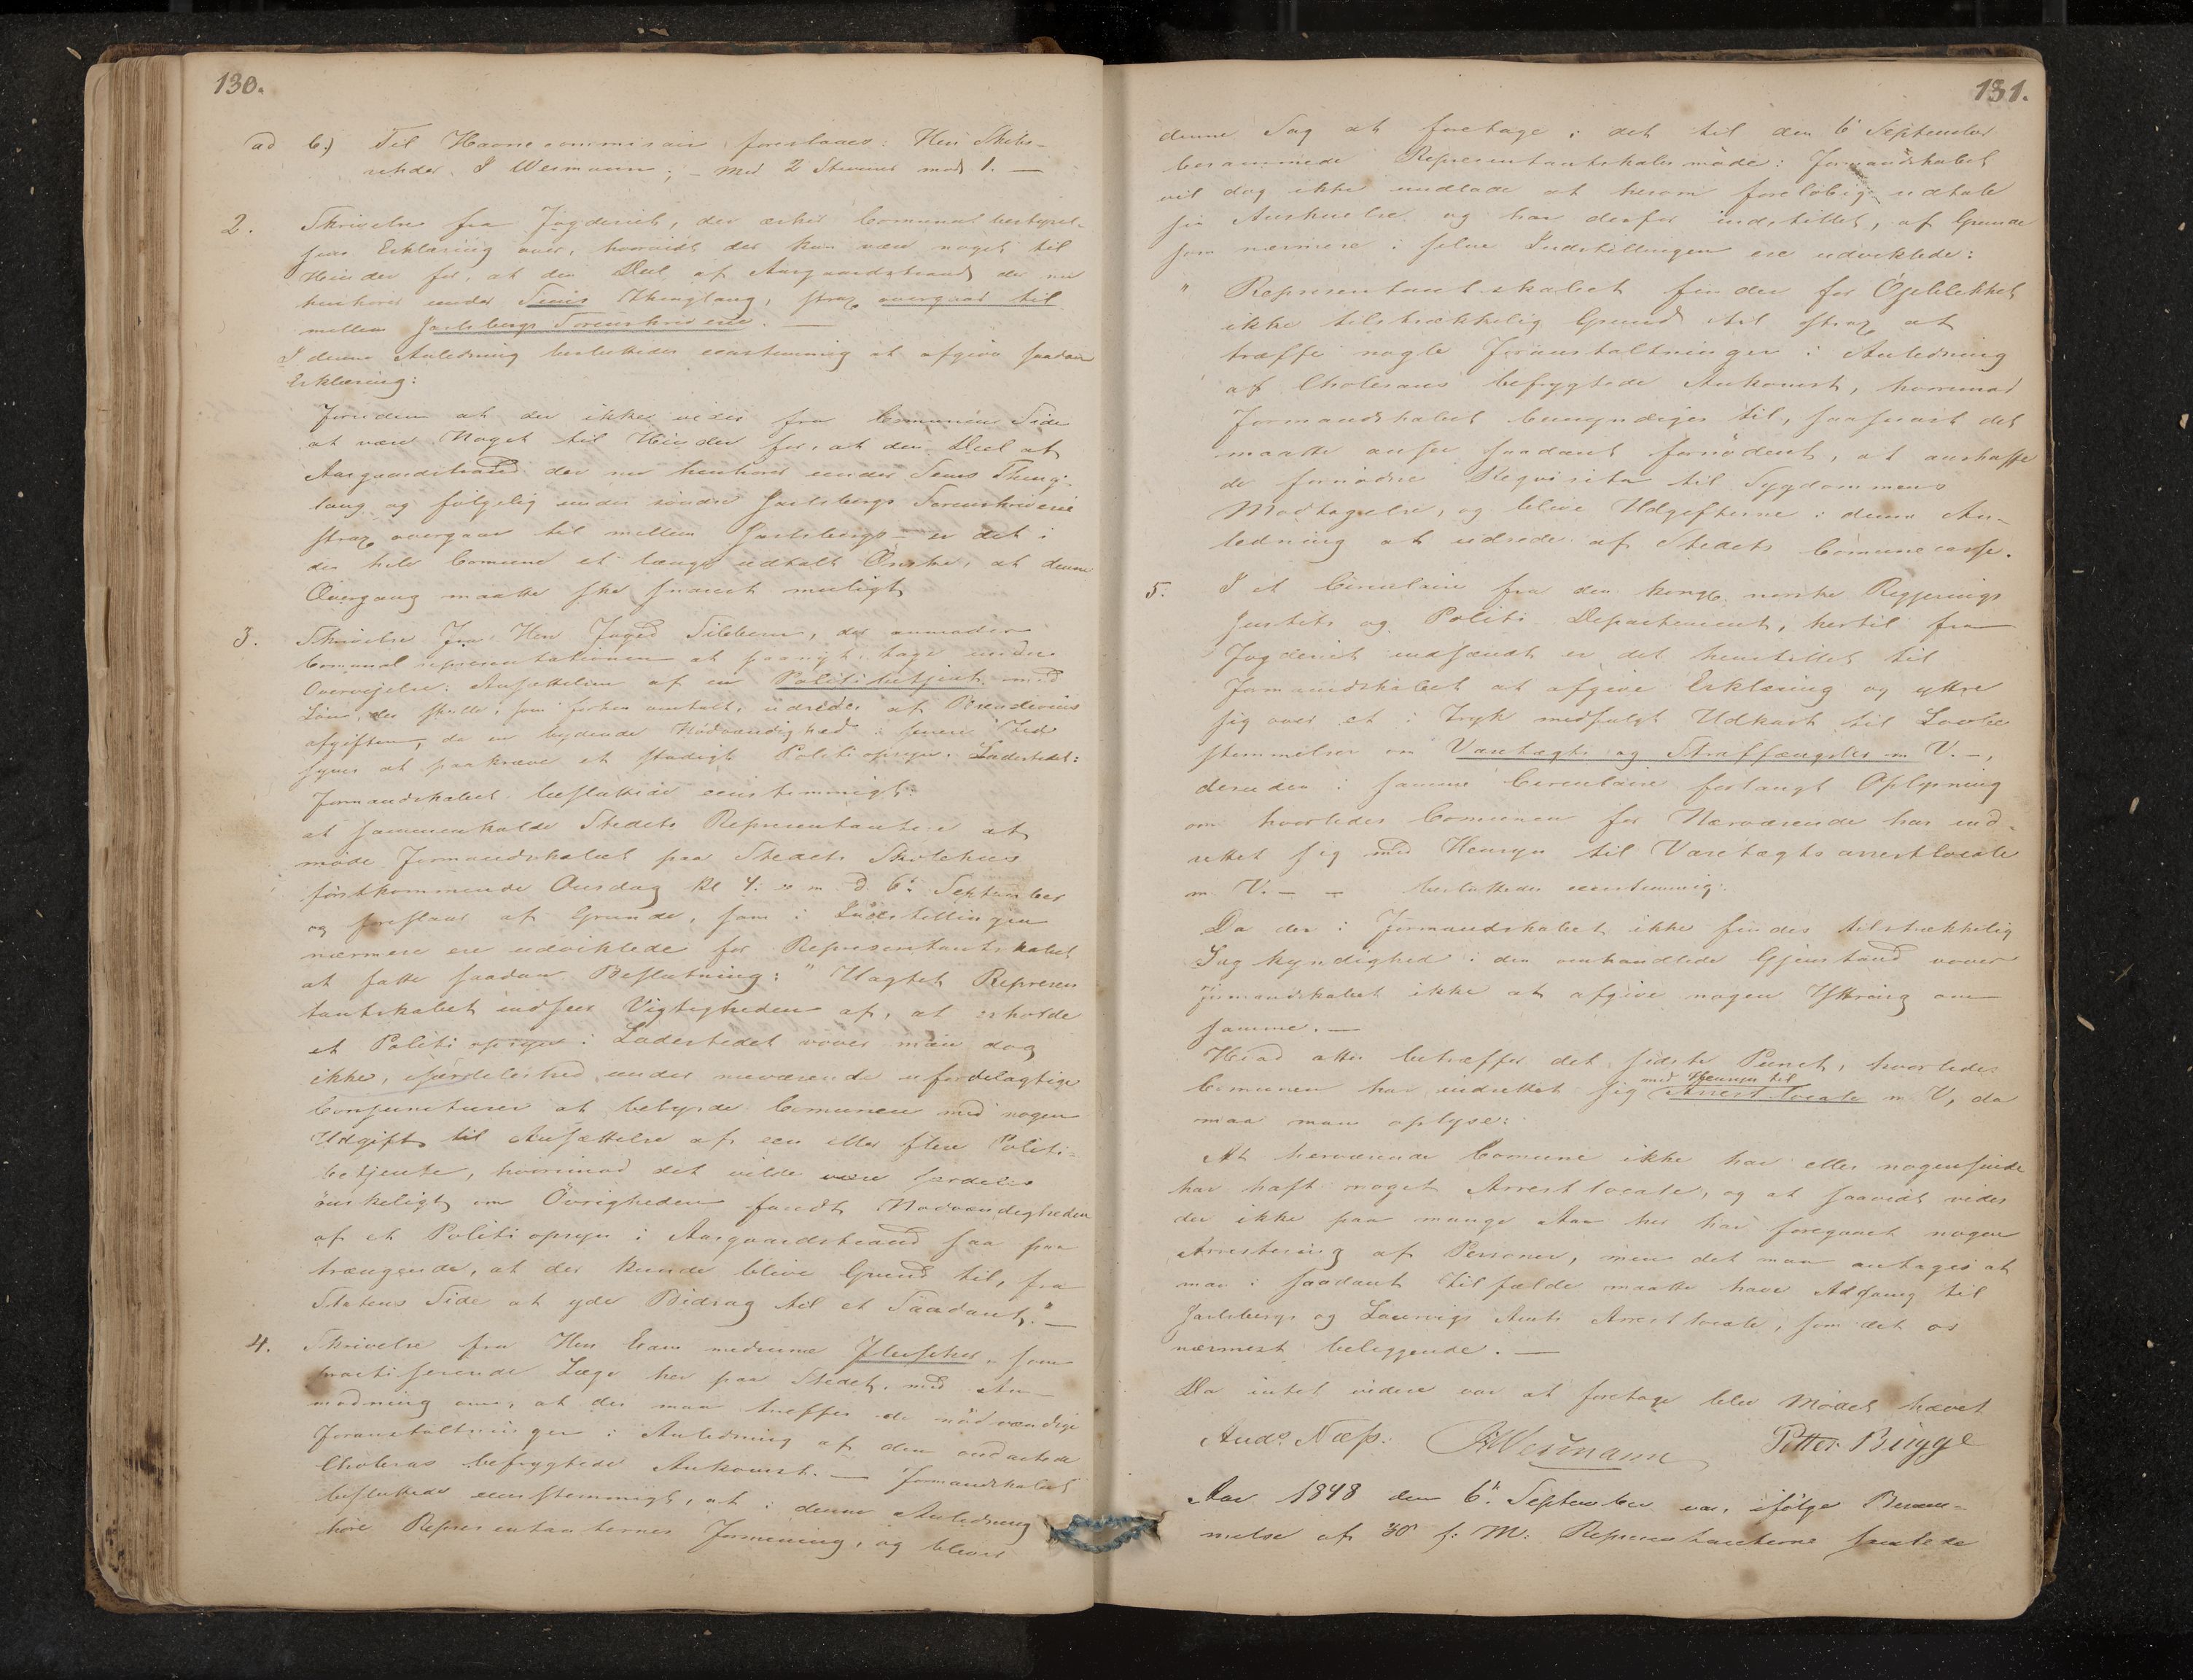 130.
ad b.) Til Havnecommisair foreslaaes: Herr Skibs-
rheder J Weimann; – med 2 Stemmer mod 1. –
2. Skrivelse fra Fogderiet, der æsker Communalbestyrel-
sens Erklæring over, hvorvidt der kan være noget til
Hinder for, at den Deel af Aasgaardstrand der nu
henhører under Sems Thinglaug, strax overgaar til
mellem Jarlsbergs Sorenskriverie. –
I denne Anledning besluttedes eenstemmig at afgive saadan
Erklæring:
Foruden at der ikke vides fra Communens Side
at være Noget til Hinder for, at den Deel af
Aasgaardstrand der nu henhører under Sems Thing-
laug og følgelig under søndre Jarlsbergs Sorenskriverie
strax overgaar til mellem Jarlsbergs – er det i
den hele Comune et længe udtalt Ønske, at denne
Overgang maatte skee snarest muligt
3. Skrivelse fra Herr Foged Sibbern, der anmoder
Comunal representationen at paanyt tage under
Overvejelse: Ansættelsen af en Politibetjent med
Løn, der skulde, som forhen omtalt, udredes af Brændeviins
afgiften, da en bydende Nødvendighed i senere Tid
synes at paakræve et stadigt Politiopsyn i Ladestedet:
Formandskabet besluttede eenstemmigt:
at sammenkalde Stedets Representantere at
møde Formandskabet paa Stedets Skolehuus
førstkommende Onsdag Kl 4: e. m. d. 6te September
og foreslaae af Grunde, som i Indstillingen
nærmere ere udviklede for Representantskabet
at fatte saadan Beslutning: "Uagtet Represen
tantskabet indseer Vigtigheden af, at erholde
et Politi opsyn i Ladestedet vover man dog
ikke, isærdeleshed under nuværende ufordelagtige
Conjuncturer at bebyrde Comunen med nogen
Udgift til Ansættelse af een eller flere Politi-
betjente, hvorimod det vilde være særdeles
ønskeligt om Øvrigheden fandt Nødvendigheden
af et Politi opsyn i Aasgaardstrand saa paa
trængende, at der kunde blive Grund til, fra
Statens Side at yde Bidrag til et Saadant." –
4. Skrivelse fra Herr Exam medicinæ som
practiserende Læge her paa Stedet, med An-
modning om, at der maa træffes de nødvendige
Foranstaltninger i Anledning af den ondartede
Choleras befrygtede Ankomst. – Formandskabet
besluttede eenstemmigt, at i denne Anledning
høre Representanternes Formening, og bliver
131.
denne Sag at foretage i det til den 6te September
berammede Representantskabsmøde: Formandskabet
vil dog ikke undlade at herom foreløbig udtale
sin Anskuelse og har derfor indstillet, af Grunde
som nærmere i selve Indstillingen ere udviklede:
" Representantskabet finder for Øjeblikket
ikke tilstrækkelig Grund til strax at
træffe nogle Foranstaltninger i Anledning
af Choleraens befrygtede Ankomst, hvorimod
Formandskabet bemyndiges til, saasnart det
maatte ansee saadant fornødent, at anskaffe
de fornødne Reqvisita til Sygdommens
Modtagelse, og blive Udgifterne i denne An-
ledning at udrede af Stedets Comunecasse.
5. I et Circulaire fra den kongl. norske Regjerings
Justits og Politi Departement, hertil fra
Fogderiet indsendt er det henstillet til
Formandskabet at afgive Erklæring og yttre
sig over et i Tryk medfulgt Udkast til Lovbe
stemmelser om Varetægts og Straffængsler m V. –,
desuden i samme Circulaire forlangt Oplysning
om hvorledes Comunen for Nærværende har ind-
rettet sig med Hensyn til Varetægts arrestlocale
m. V. – – besluttedes eenstemmig:
Da der i Formandskabet ikke findes tilstrækkelig
Sagkyndighed i den omhandlede Gjenstand vover
Formandskabet ikke at afgive nogen Yttring om
samme. –
Hvad atter betræffer det sidste Punct, hvorledes
Comunen har indrettet sig med Hensyn til Arrest locale m V, da
maa man oplyse:
At herværende Comune ikke har eller nogensinde
har haft noget Arrestlocale, og at saavidt vides
der ikke paa mange Aar her har foregaaet nogen
Arrestering af Personer, men det maa antages at
man i saadant Tilfælde maatte have Adgang til
Jarlsbergs og Laurvigs Amts Arrestlocale, som det os
nærmest beliggende. –
Da intet videre var at foretage blev Mødet hævet
Ands. Næss. JWeimann Petter Bügge
Aar 1848 den 6te September var, ifølge Beram-
melse af 30 f: M: Representanterne samlede